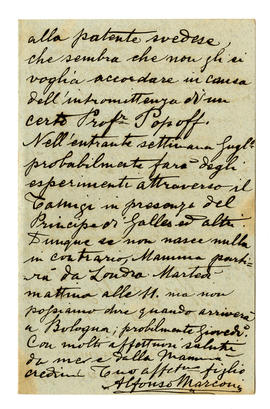 alla patente svedese,
che sembra che non gli si
voglia accordare in causa
dell'intromittenza di un
certo Prof. Popoff.
Nell'entrante settimana Gugl.º
probabilmente farà degli
esperimenti attraverso il
Tamigi in presenza del
Principe di Galles ed altri
Dunque se non nasce nulla
in contrario, Mamma parti-
rà da Londra Martedì
mattina alle 11. ma non
possiamo dire quando arriverà
a Bologna; probilmente giovedì.
Con molti affettuosi saluti
da me e dalla Mamma
credimi Tuo affet. figlio
Alfonso Marconi